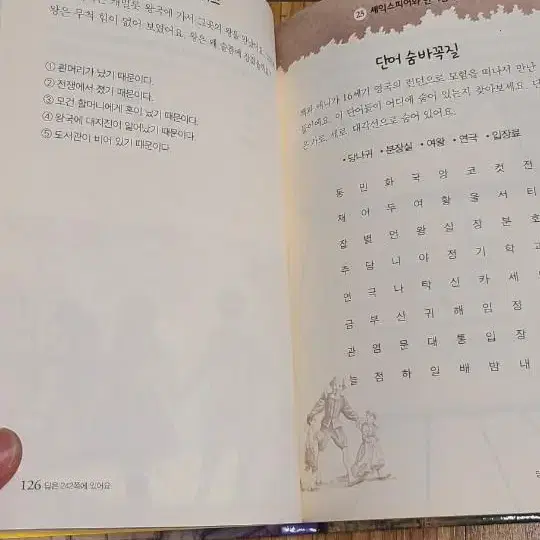 캐밀롯 왕국에 가서 그곳의 왕을 만났어요.
왕은 무척 힘이 없어 보였어요. 왕은 왜 슬픔에
① 흰머리가 났기 때문이다.
② 전쟁에서 졌기 때문이다.
③ 모건 할머니에게 혼이 났기 때문이다.
④ 왕국에 대지진이 일어났기 때문이다.
⑤ 도서관이 비어 있기 때문이다.
126 답은 242쪽에 있어요.
25 셰익스피어와
단어 숨바꼭질
잭과 애니가 16세기 영국의 런던으로 모험을 떠나서 만난
들이에요. 이 단어들이 어디에 숨어 있는지 찾아보세요.
은 가로, 세로, 대각선으로 숨어 있어요.
• 당나귀 • 분장실 • 여왕 • 연극 • 입장료
동 민 화 국 앙 코 컷 전
채 어 두 여 황 울 서 티
잡 별 언 왕 실 장 분 호
주 당 니 아 정 기 학 교
연 극 나 탁 신 카 세
금 부 신 귀 해 임 정
관 영 문 대 통 입 장
늘 점 하 일 배 밤 내